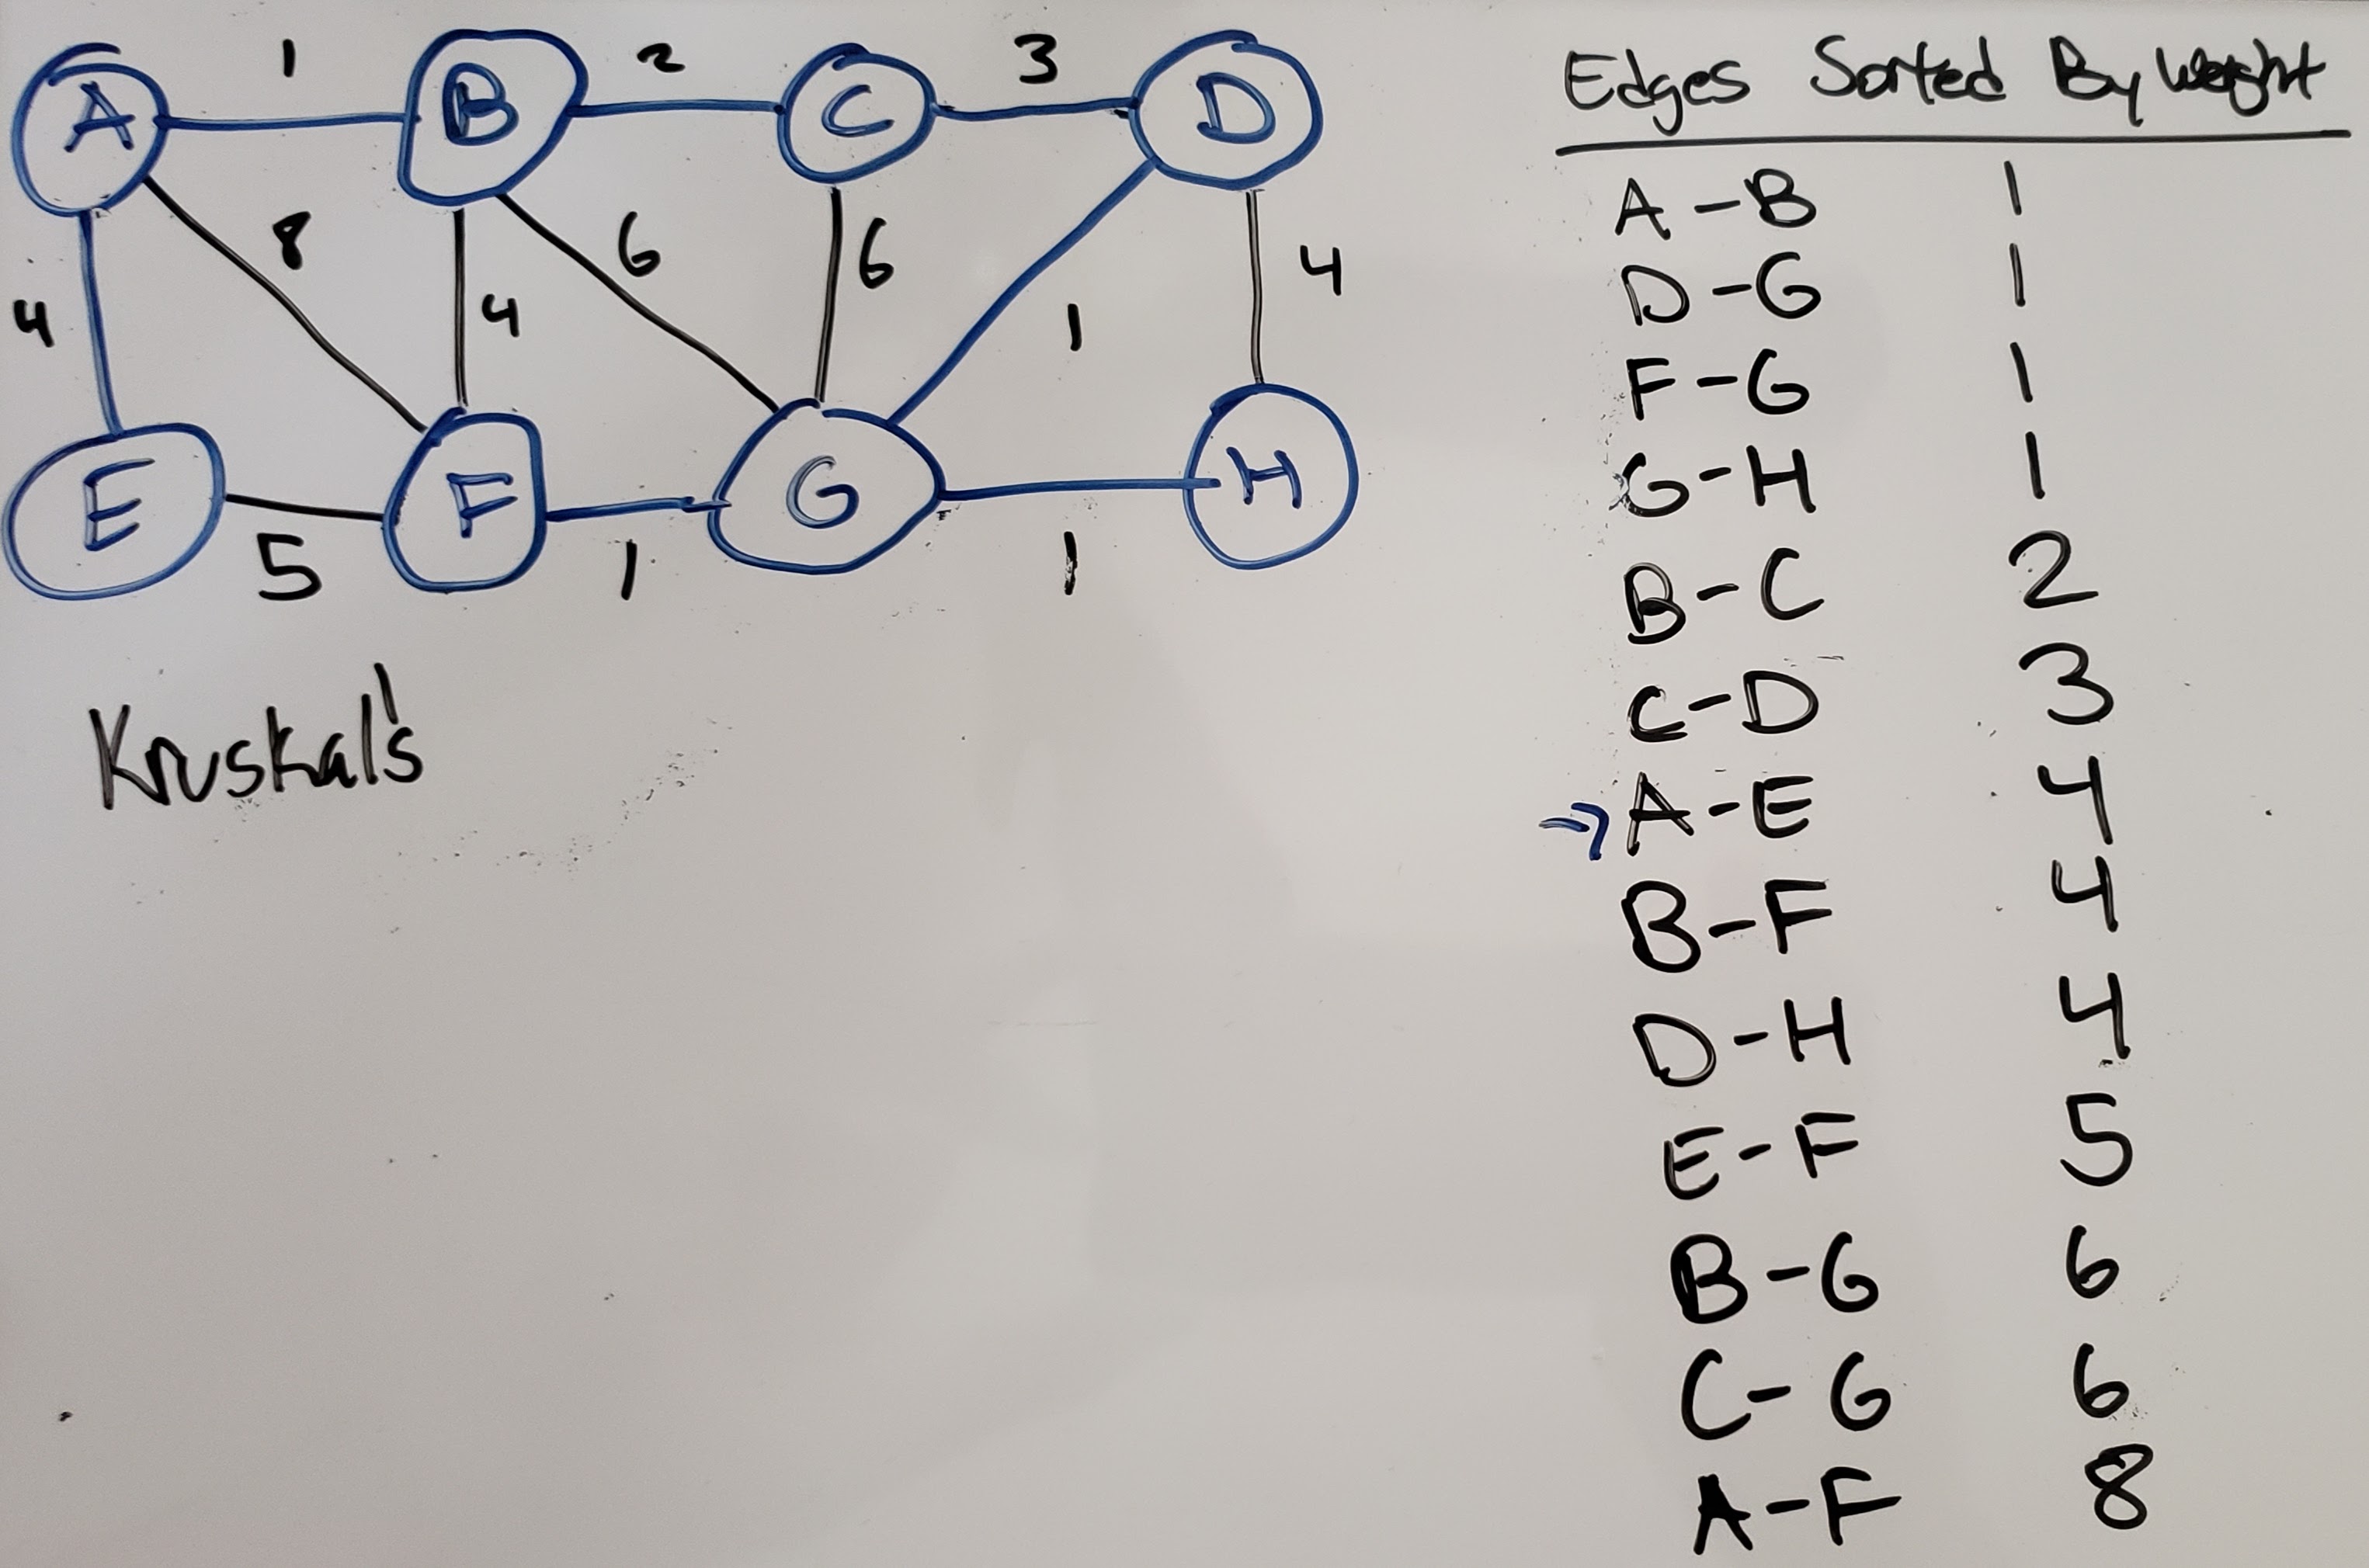 1 2 3
A B C D
8 6 6 4
4 4 1
E F G H
5 1 1
Kruskal's
Edges Sorted By Weight
A-B 1
D-G 1
F-G 1
G-H 1
B-C 2
C-D 3
→ A-E 4
B-F 4
D-H 4
E-F 5
B-G 6
C-G 6
A-F 8